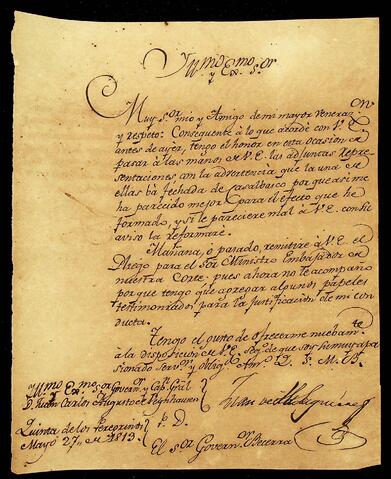 Yllmo. mo. or
y Ex. S.or
Muy S.or mio y Amigo de mi mayor Veneraz.on
y respeto: Consequente à lo que acordè con V.E.
antes de ayer, tengo el honor en esta ocasion de
pasar à las manos de V.E. las adjuntas Repre-
sentaciones con la advertencia que la una de
ellas bà fechada de Casalbaico por que asi me
ha parecido mejor para el efecto que he
formado, y si le pareciere mal à V.E. con su
aviso la reformarè.
Mañana, ò pasado, remitirè à V.E. el
Pliego para el Sor Ministro Embajador de
nuestra Corte, pues ahora no le acompaño
porque tengo que agregar algunos papeles
testimoniados para la justificacion de mi con
ducta.
Tengo el gusto de ofrecerme nuebam.te
à la disposicion de V.E. de que soy siempre su apa-
sionado Serv.or y Oblig.o Am.o Q. S. M. B.
Yllmo. mo. or y Ex. S.or Govern.or y Cap.n Gràl
D. Juan Carlos Augusto de
Quinta de los Peregrinos
Mayo 27 de 1813.
P. D.
El S.or Govern.or Becerra